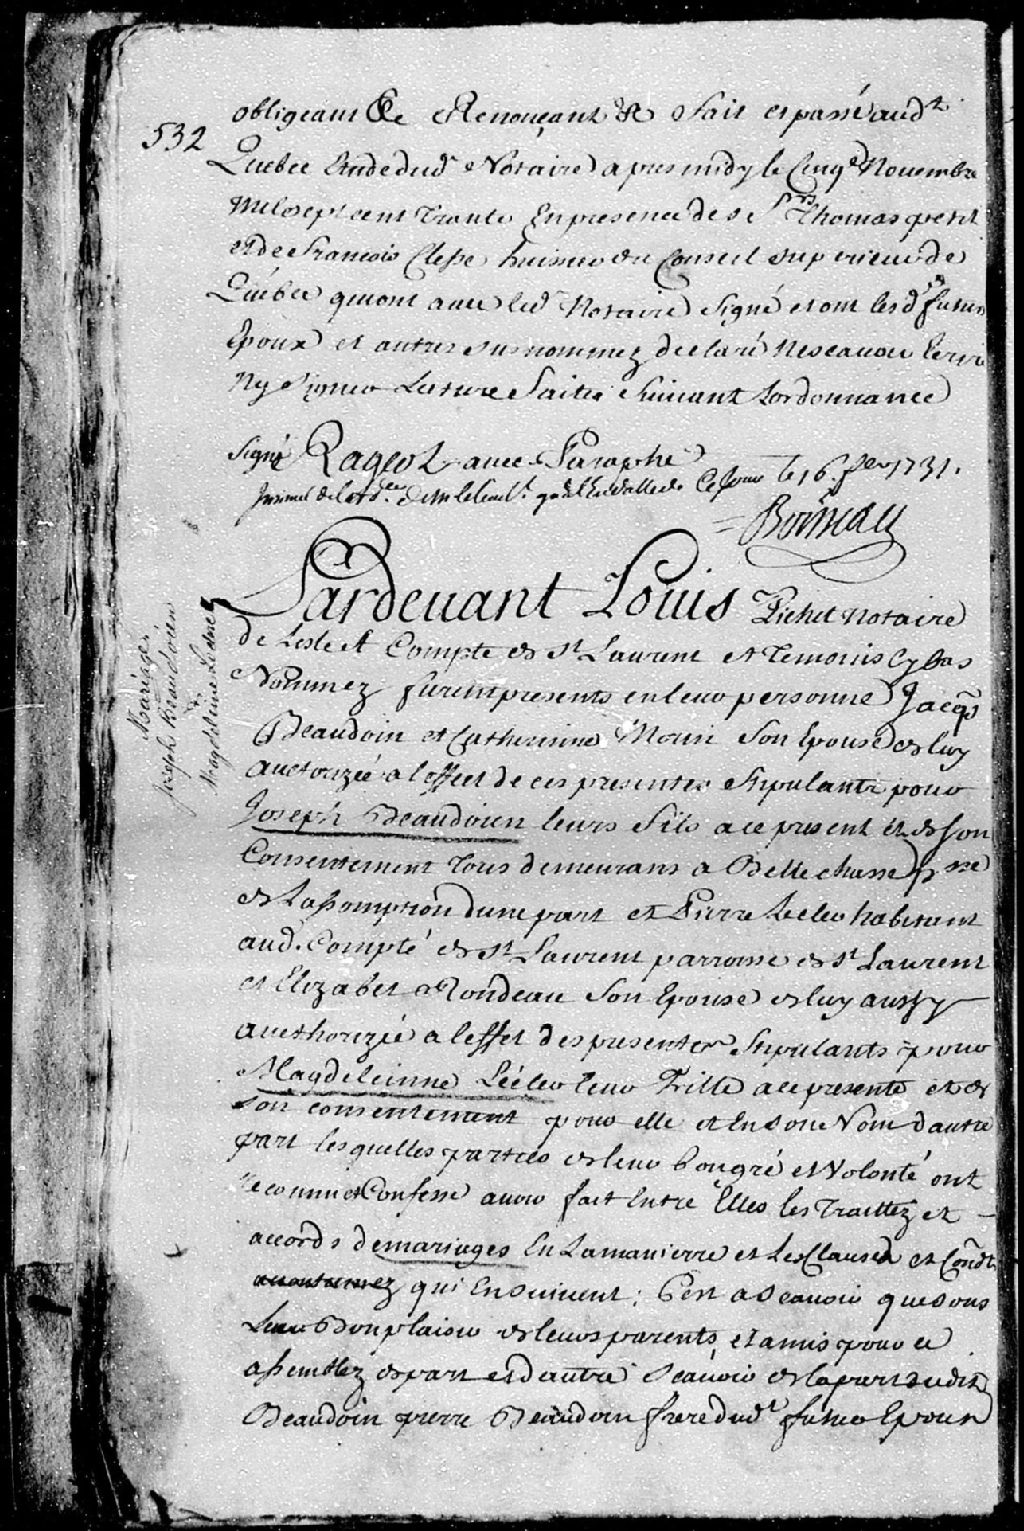 532
obligeant &c Renonçant &c fait et passé aud.t
Quebec Etude dud. Notaire apres midy le Cinq.e Novembre
Mil sept cent Trante En presence des Srs Thomas petit
et de francois Clesse huissier du Conseil superieur de
Québec qui ont avec led. Notaire Signé et ont les d. futurs
Epoux et autres susnommez declaré ne scavoir Ecrire
Ny signer Lecture faitte Suivant Lordonnance
Signé Rageot avec Paraphe
Ce jour le 16. 1731.
Boisseau
Mariage
Joseph Beaudoin
&
Magdeleine Leclerc
Pardevant Louis Pichet notaire
de Lisle et Compté de St Laurent et Temoins Cy bas
Nommez furent presents en leur personne Jacqs
Beaudoin et Catherinne Morin Son Epouse de luy
auctorizée a leffect de ces presentes Stipulants pour
Joseph Beaudoin leurs fils a ce present et de son
Consentement Tous demeurans a Bellechasse psse
de Lassomption dune part et Pierre Lecler habitant
aud. Compté de St Laurent parroisse de St Laurent
et Elizabet Rondeau Son Epouse de luy aussy
aucthorizée a leffet des presentes Stipulants pour
Magdeleinne Lécler leur Fille a ce presente et de
son consentement pour elle et En son Nom dautre
part lesquelles parties de leur bon gré et Volonté ont
reconnu et Confessé avoir fait Entre Elles les Traittez et
accords de mariages En La manierre et Les Clauses et Condt
accoutumez qui Ensuivent; Cest a Scavoir que sous
Leur Bon plaisir de leurs parents, et amis pour ce
assemblez de part et dautre Scavoir de la part dudit
Beaudoin pierre Beaudoin frere dud.t futur Epoux